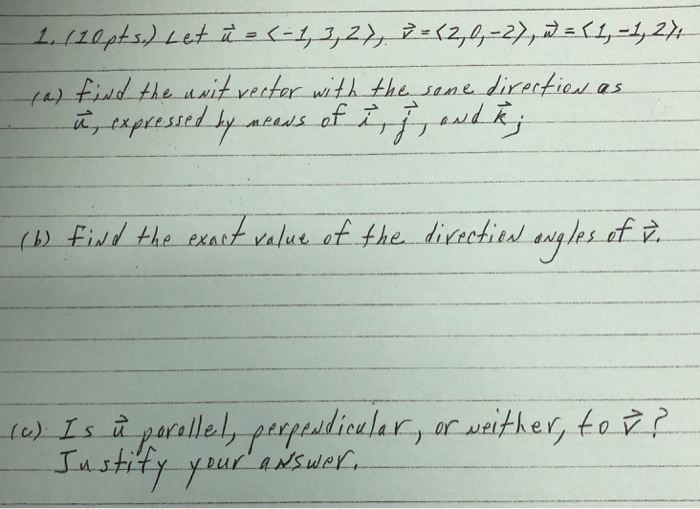 1. (10pts.) Let u⃗ = <-1, 3, 2>, v⃗ = <2, 0, -2>, w⃗ = <1, -1, 2>;
(a) Find the unit vector with the same direction as
u⃗, expressed by means of i⃗, j⃗, and k⃗;
(b) Find the exact value of the direction angles of v⃗.
(c) Is u⃗ parallel, perpendicular, or neither, to v⃗?
Justify your answer.